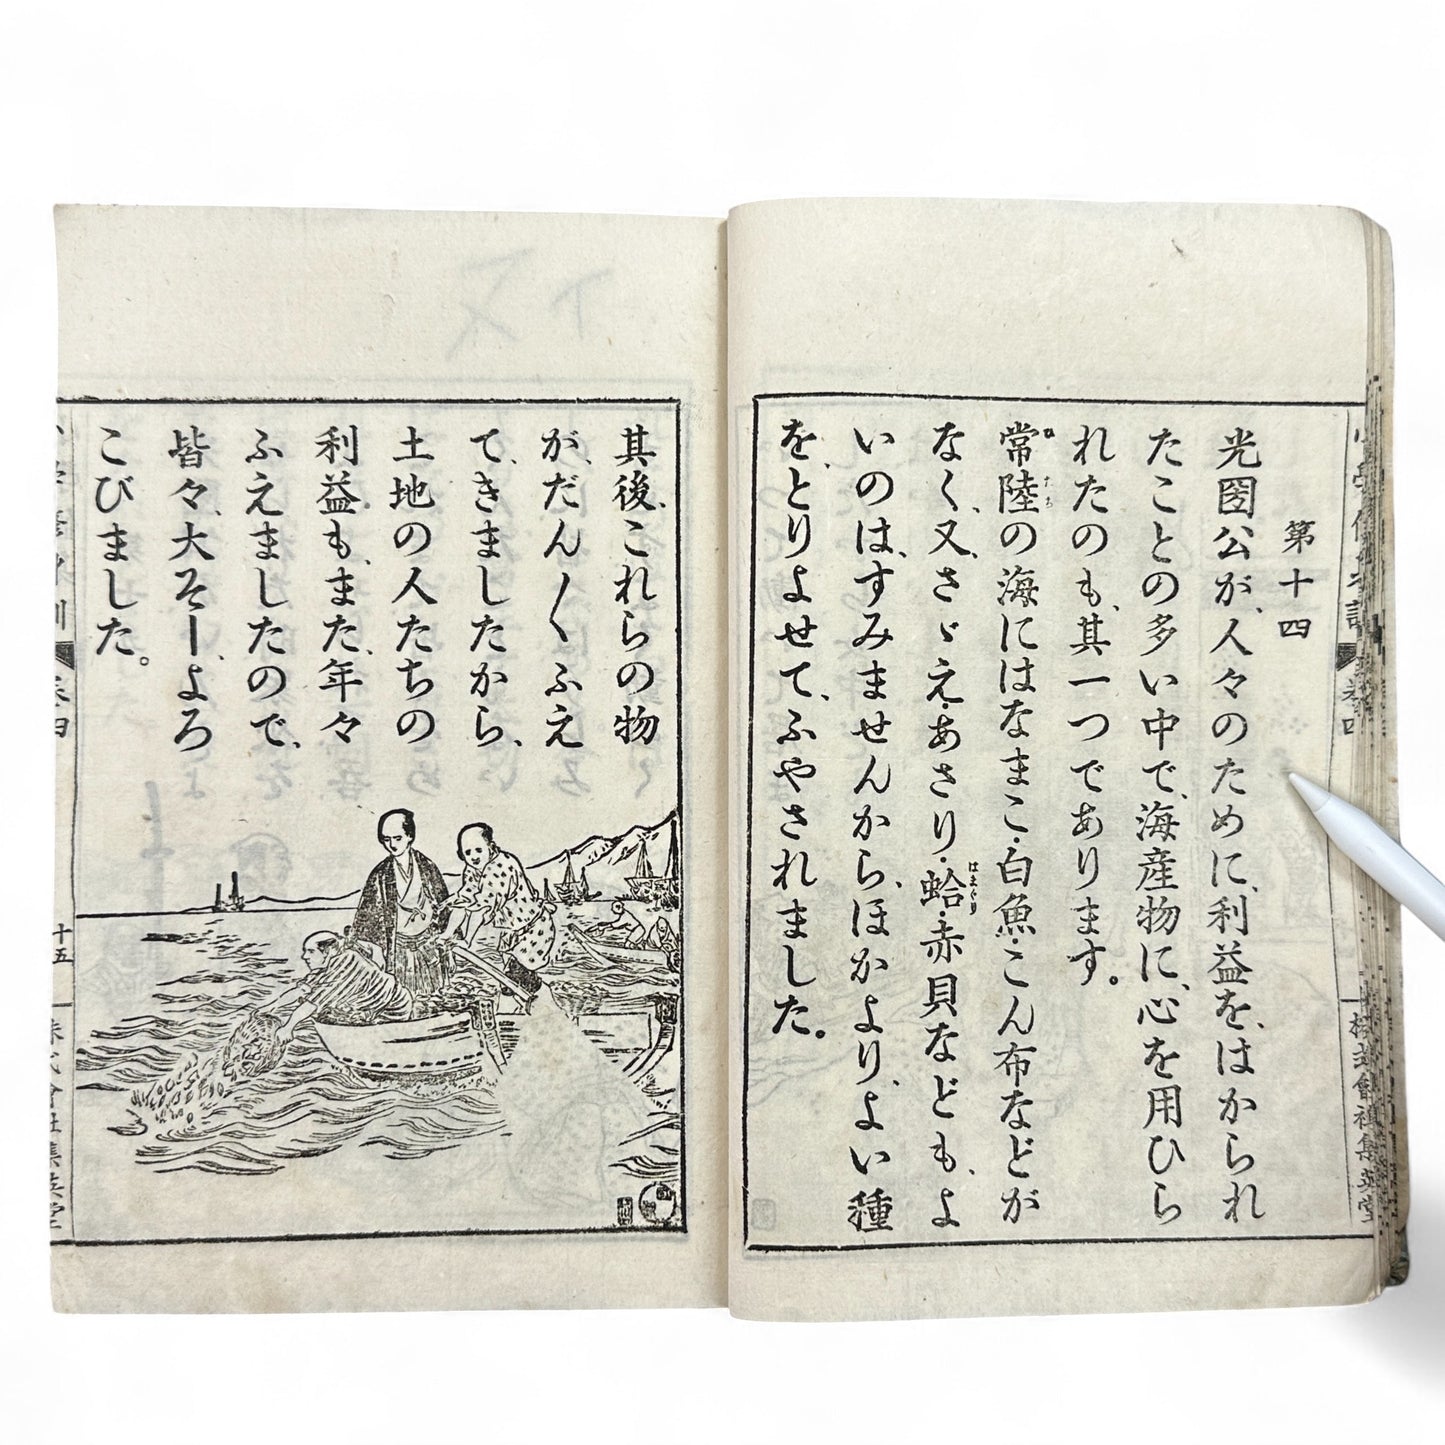 第十四
光圀公が、人々のために、利益を、はかられ
たことの多い中で、海産物に、心を用ひら
れたのも、其一つであります。
常陸の海にはなまこ・白魚・こん布などが
なく、又、さゞえ・あさり・蛤・赤貝なども、よ
いのは、すみませんから、ほかより、よい種
を、とりよせて、ふやされました。
ひたち
はまぐり
其後、これらの物
が、だん〳〵ふえ
て、きましたから、
土地の人たちの
利益も、また、年々
ふえましたので、
皆々、大そー、よろ
こびました。
十五